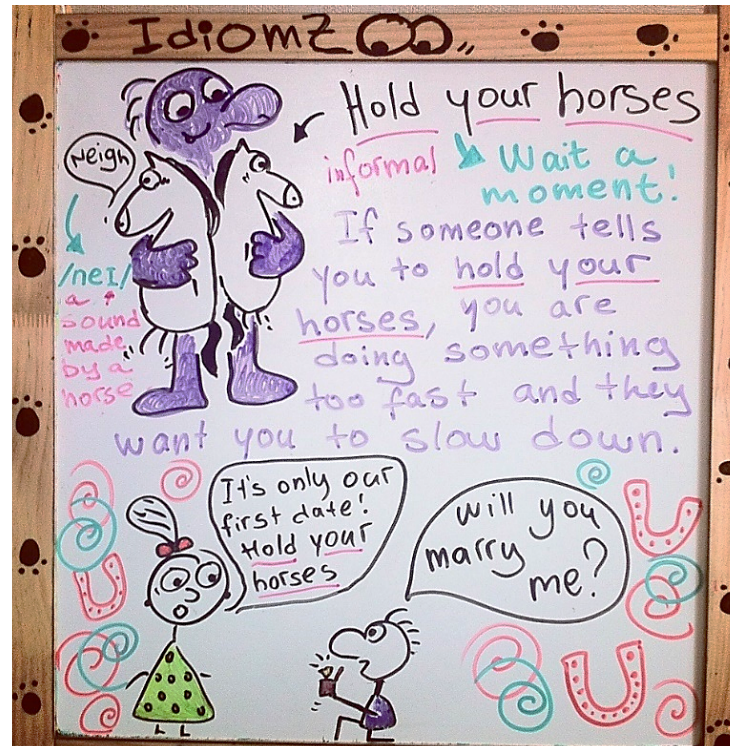 IdiomZOO
Hold your horses
informal
Wait a
moment!
If someone tells
you to hold your
horses, you are
doing something
too fast and they
want you to slow down.
Neigh
/neɪ/
a
sound
made
by a
horse
It's only our
first date!
Hold your
horses
Will you
marry
me?